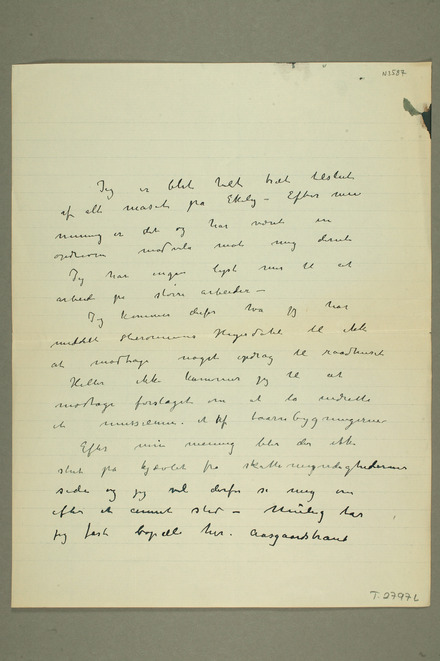 N3587
Jeg er blit helt træt tilslut
af alt maset på Ekely – Efter min
mening er det og har været en
mod mig
Jeg har ingen lyst mer til at
arbeide på større arbeider –
Jeg kommer derfor hva jeg har
meddelt til ikke
at modtage noget opdrag til raadhuset
Heller ikke kommer jeg til at
modtage forslaget om at la indrette
et museum i et af taarnbygningerne
Efter min mening blir der ikke
slut på fra skattemyndighedernes
side og jeg vil derfor se mig om
efter et annet sted – har
jeg fast bopæl her. Aasgaardstrand
T 2797c